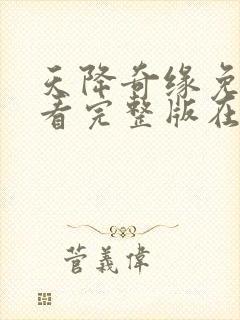 天降奇缘免
看完整版在
菅義偉